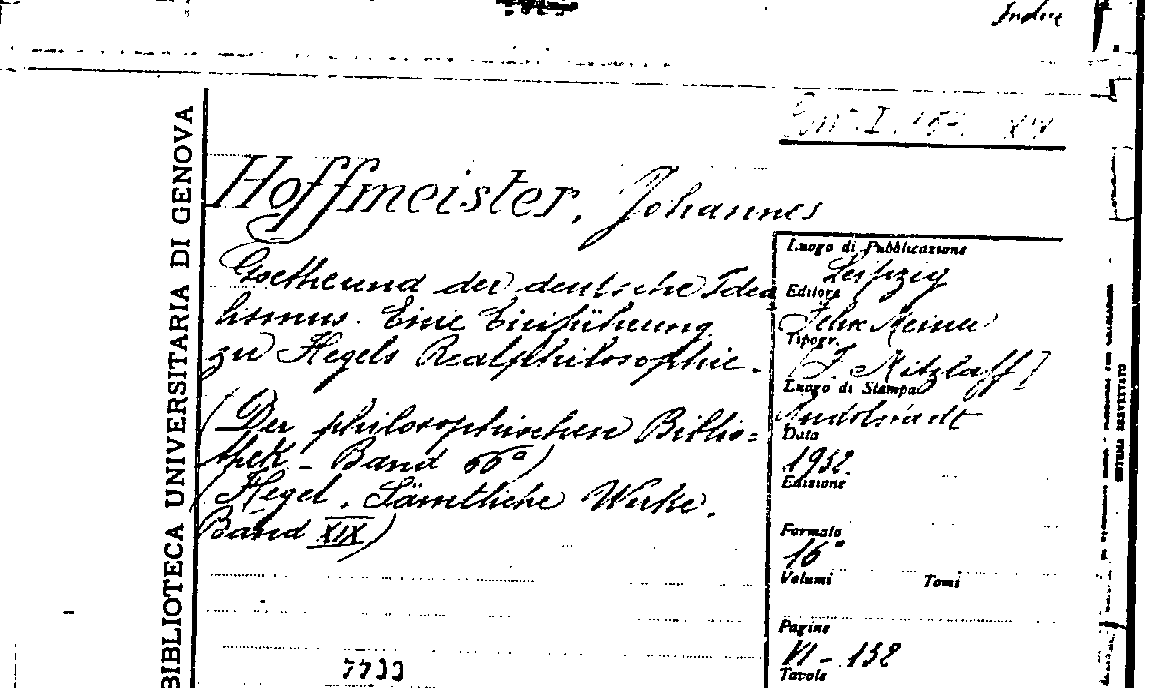 Indre
BIBLIOTECA UNIVERSITARIA DI GENOVA
Hoffmeister, Johannes
Goethe und der deutsche Idea
lismus. Eine Einführung
zu Hegels Realphilosophie.
(Der philosophischen Biblio=
thek - Band 66a)
(Hegel. Sämtliche Werke.
Band XIX)
7733
Luogo di Pubblicazione
Leipzig
Editore
Felix Meiner
Tipogr.
(J. Mitzlaff)
Luogo di Stampa
Rudolstadt
Data
1932
Edizione
Formato
16°
Volumi Tomi
Pagine
VI - 132
Tavole